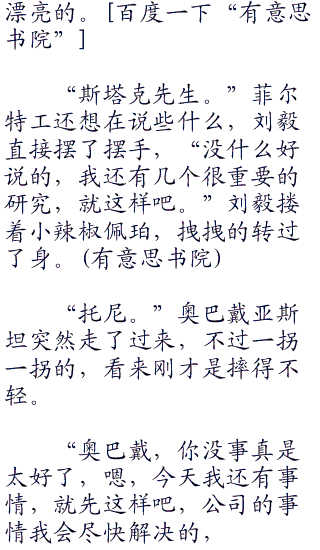 漂亮的。[百度一下“有意思
书院”]
“斯塔克先生。”菲尔
特工还想在说些什么，刘毅
直接摆了摆手，“没什么好
说的，我还有几个很重要的
研究，就这样吧。”刘毅搂
着小辣椒佩珀，拽拽的转过
了身。(有意思书院)
“托尼。”奥巴戴亚斯
坦突然走了过来，不过一拐
一拐的，看来刚才是摔得不
轻。
“奥巴戴，你没事真是
太好了，嗯，今天我还有事
情，就先这样吧，公司的事
情我会尽快解决的，